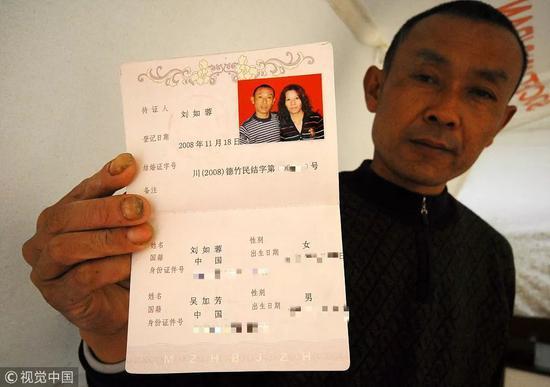 持证人 刘如蓉
登记日期 2008年11月18日
结婚证字号 川(2008)德竹民结字第 号
备注
姓名 刘如蓉 性别 女
国籍 中国 出生日期
身份证件号
姓名 吴加芳 性别 男
国籍 中国 出生日期
身份证件号
M Z H B J Z H
视觉中国